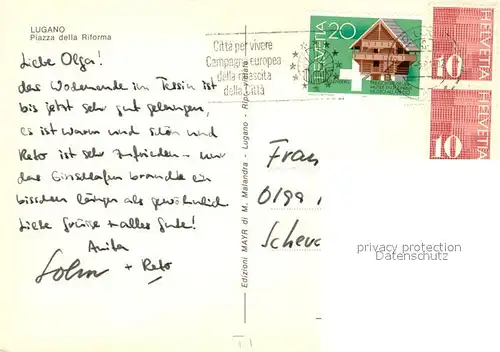 LUGANO
Piazza della Riforma
Liebe Olga!
das Wochenende im Tessin ist
bis jetzt sehr gut gelungen,
es ist warm und schön und
Reto ist sehr zufrieden – nur
das Einschlafen brauchte ein
bisschen länger als gewöhnlich
Liebe Grüsse + alles Gute!
Anita
+ Reto
Edizioni MAYR di M. Malandra - Lugano - Rip.
Città per vivere
Campagna europea
della rinascita
della Città
HELVETIA
20
HELVETIA
10
HELVETIA
10
Frau
privacy protection
Datenschutz